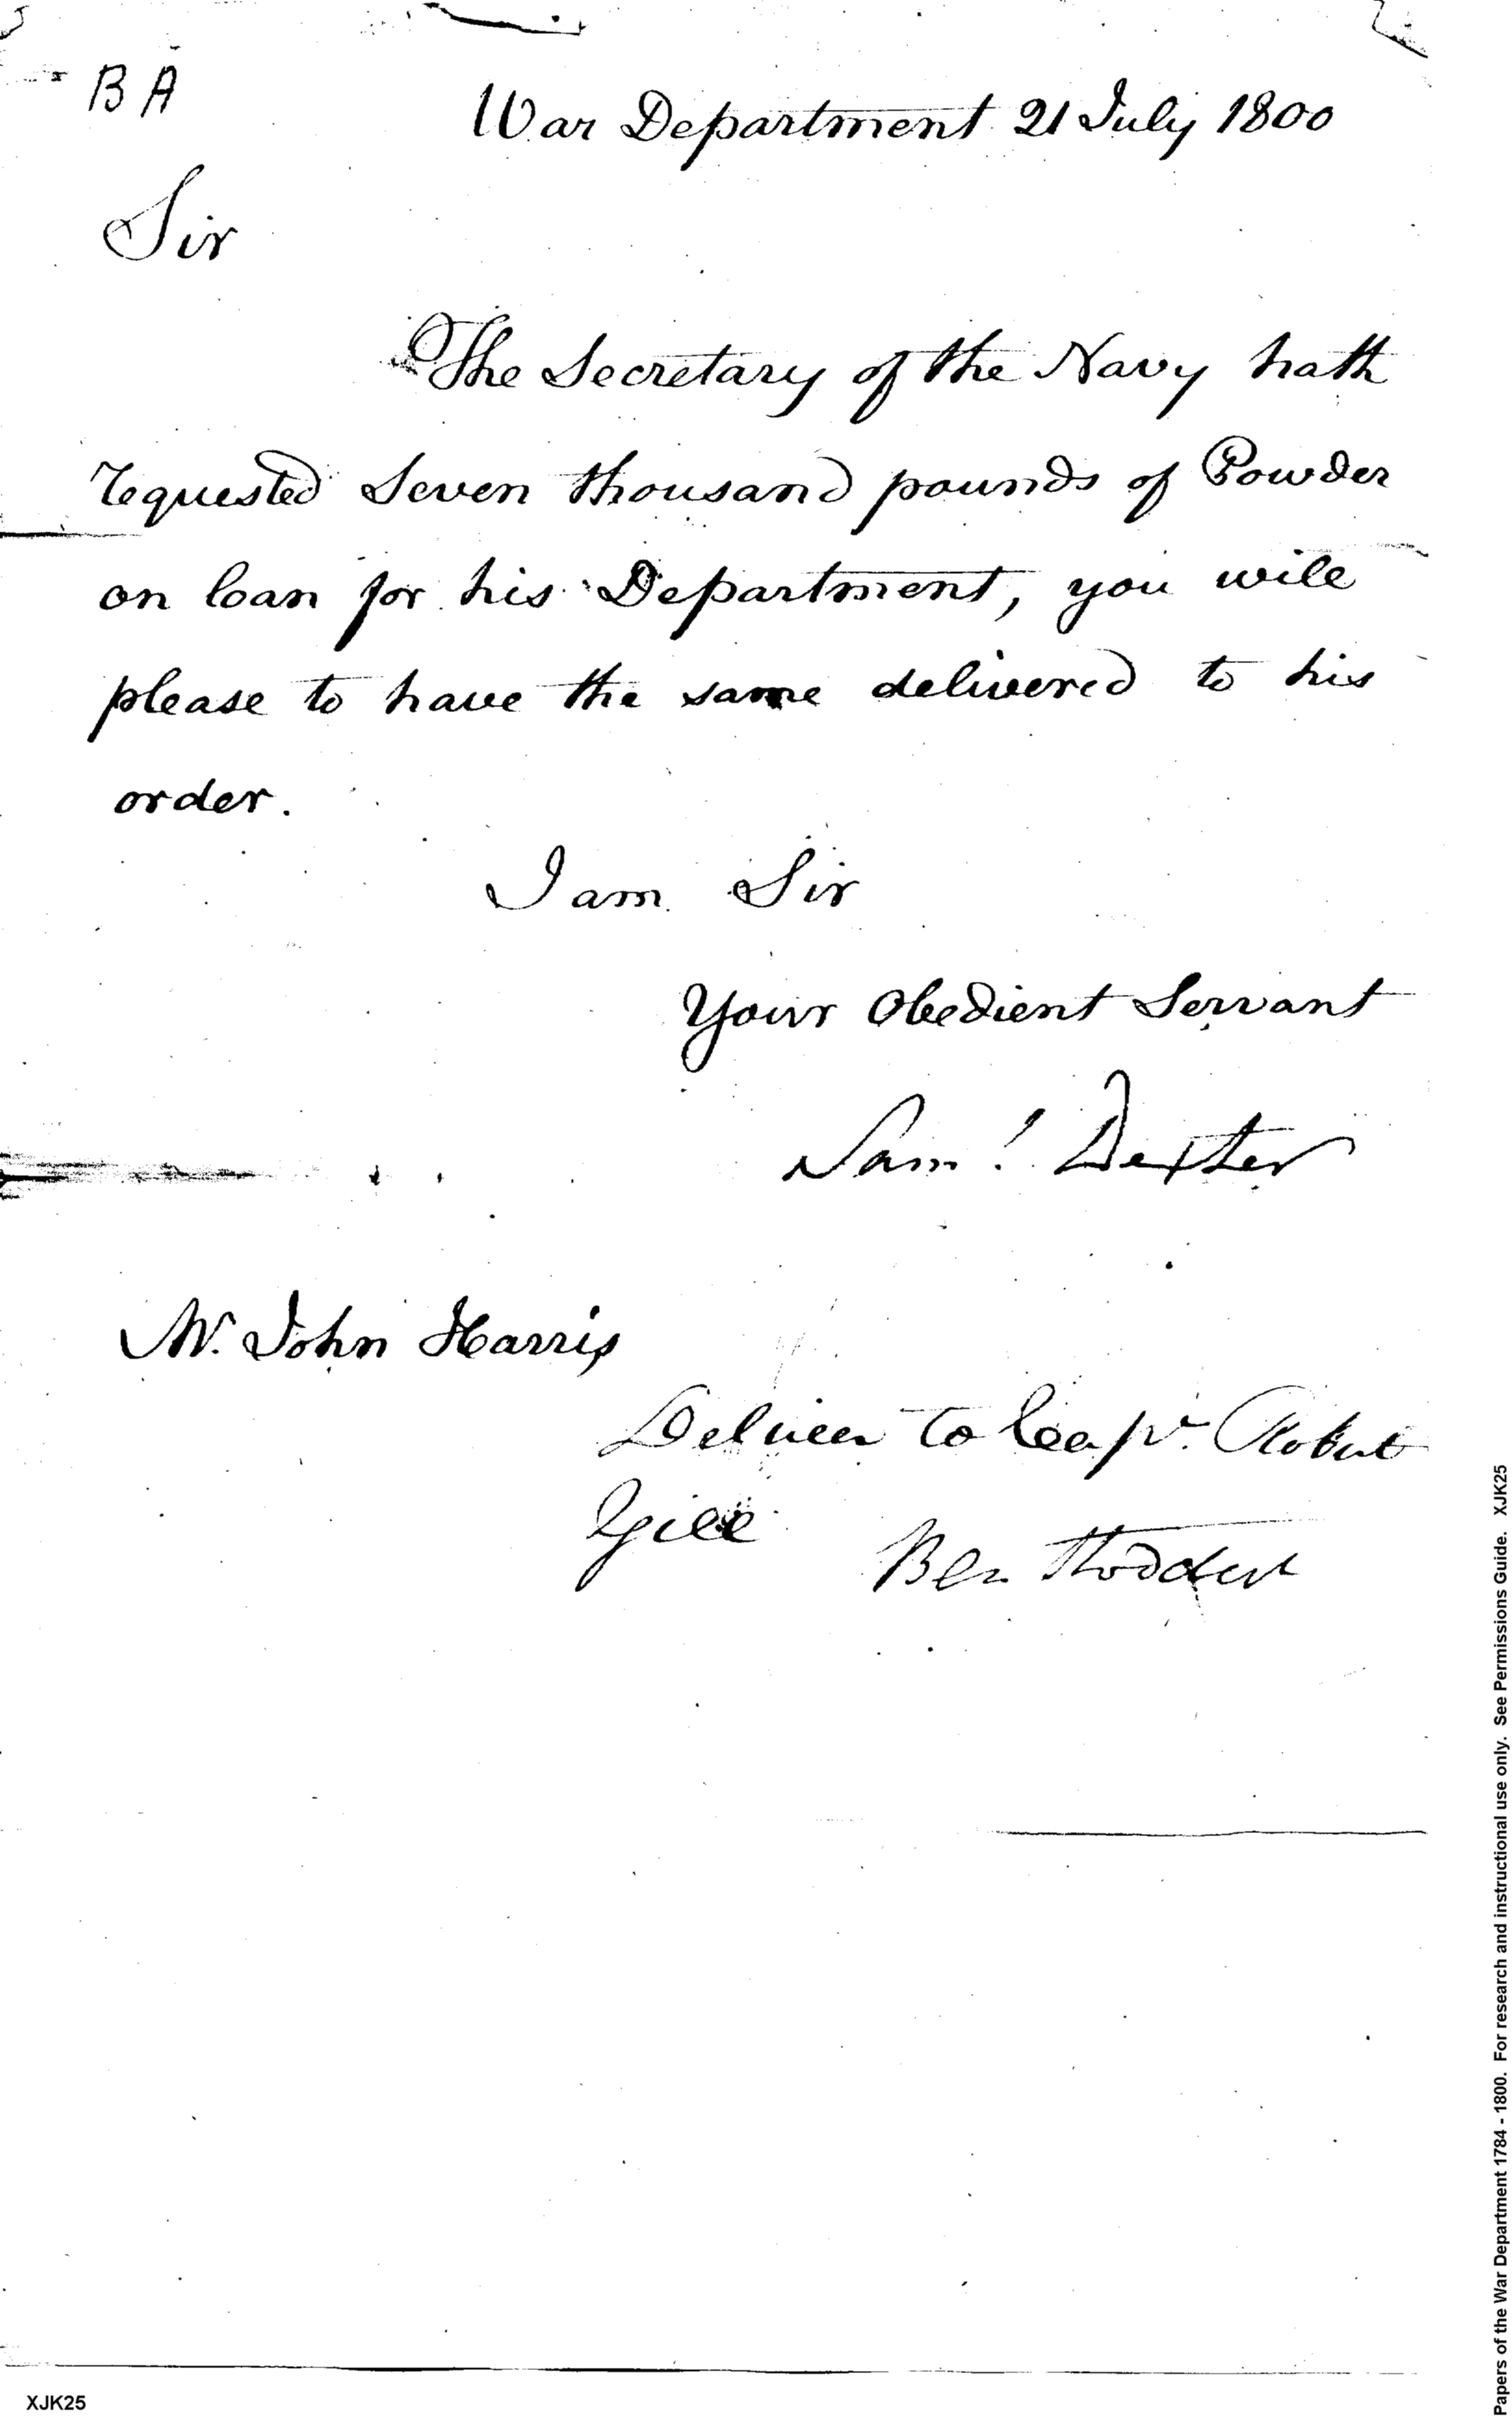 B A
War Department 21 July 1800
Sir
The Secretary of the Navy hath
requested Seven thousand pounds of Powder
on loan for his Department, you will
please to have the same delivered to his
order.
I am Sir
Your Obedient Servant
Saml Dexter
Mr. John Harris
Deliver to Capt. Robert
Gill
Ben Stoddert
XJK25
Papers of the War Department 1784 - 1800. For research and instructional use only. See Permissions Guide. XJK25